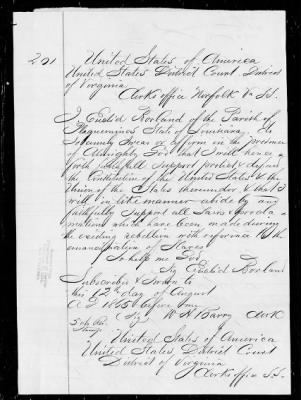 201
United States of America
United States District Court, District
of Virginia
Clerks office Norfolk Va Sct.
I Euclid Borland of the Parish of
Plaquemines State of Louisiana, do
Solemnly swear or affirm in the presence
of Almighty God that I will hence
forth faithfully support protect & defend
the Constitution of the United States & the
Union of the States thereunder & that I
will in like manner abide by and
faithfully support all Laws & procla
mations which have been made during
the existing rebellion with reference to the
emancipation of Slaves
So help me God
Sig Euclid Borland
Subscribed & Sworn to
this 12th day of August
A D 1865 before me
(Sig) W H Barry Clerk
5 cts Rev
Stamp
United States of America
United States District Court
District of Virginia
Clerks office Sct.